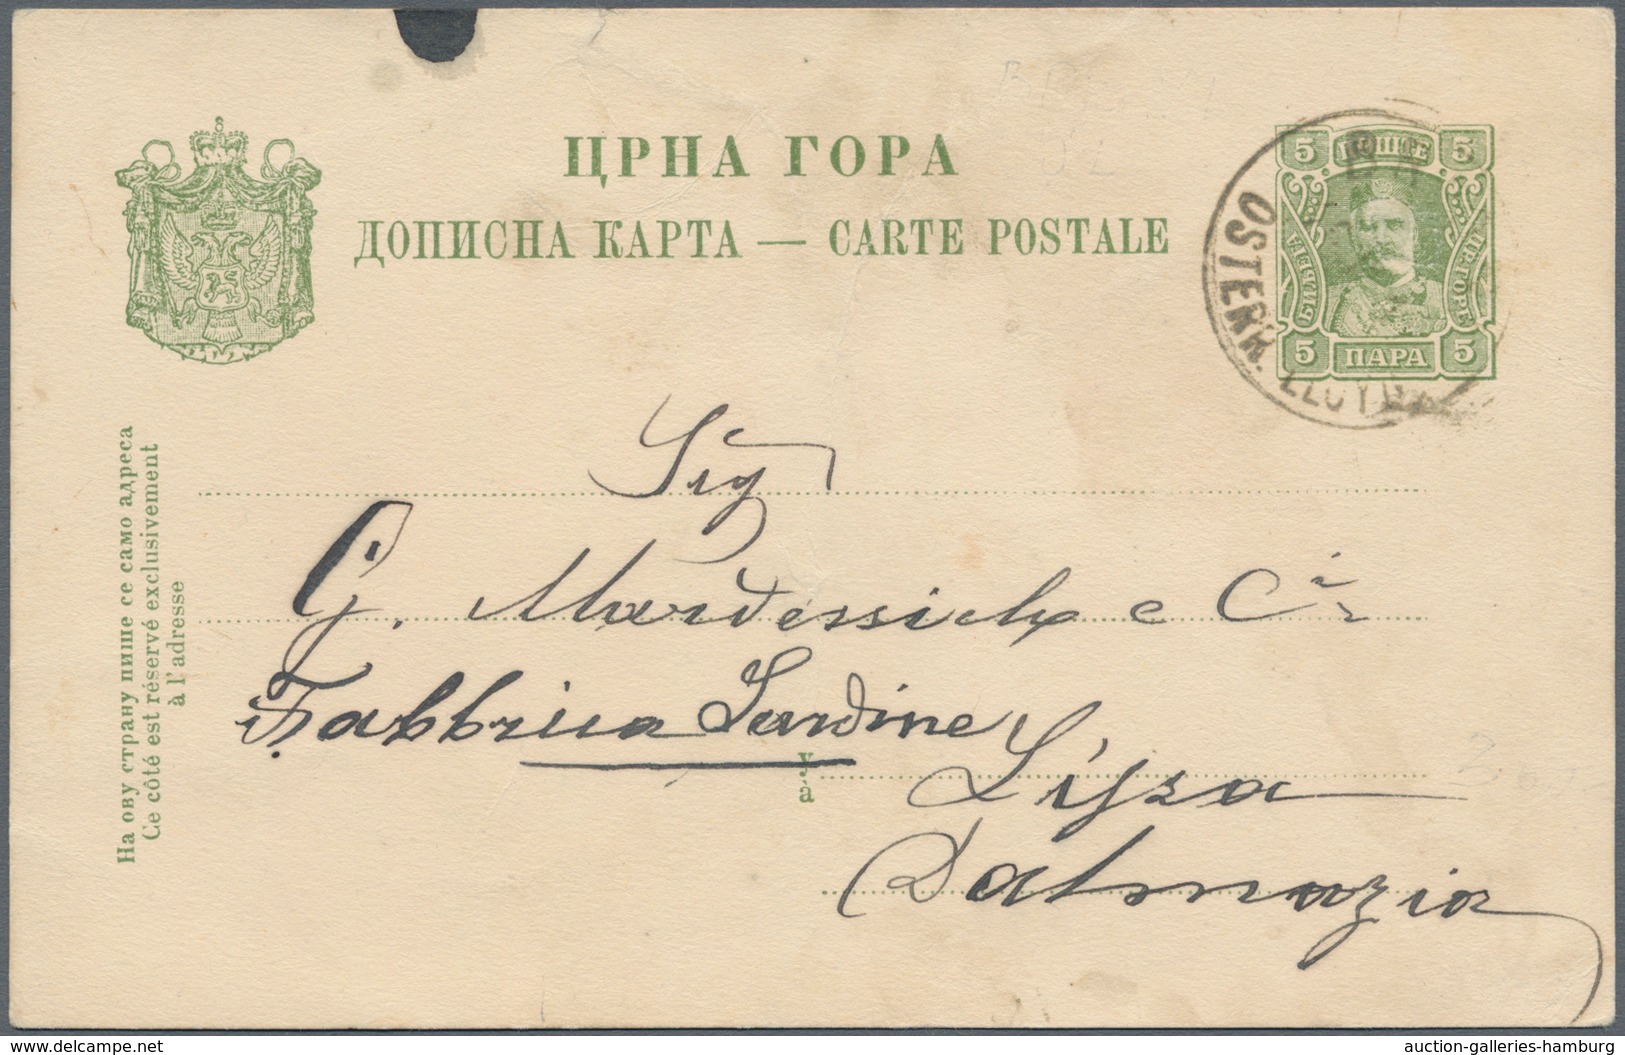 ЦРНА ГОРА
ДОПИСНА КАРТА — CARTE POSTALE
5 5
ПАРА
5 5
OSTERR. LLOYD
На ову страну пише се само адреса
Ce côté est réservé exclusivement
à l'adresse
Sig
G. Mardessich e Ci
Fabbrica Sardine
У
à
Lissa
Dalmazia
www.delcampe.net
auction-galleries-hamburg